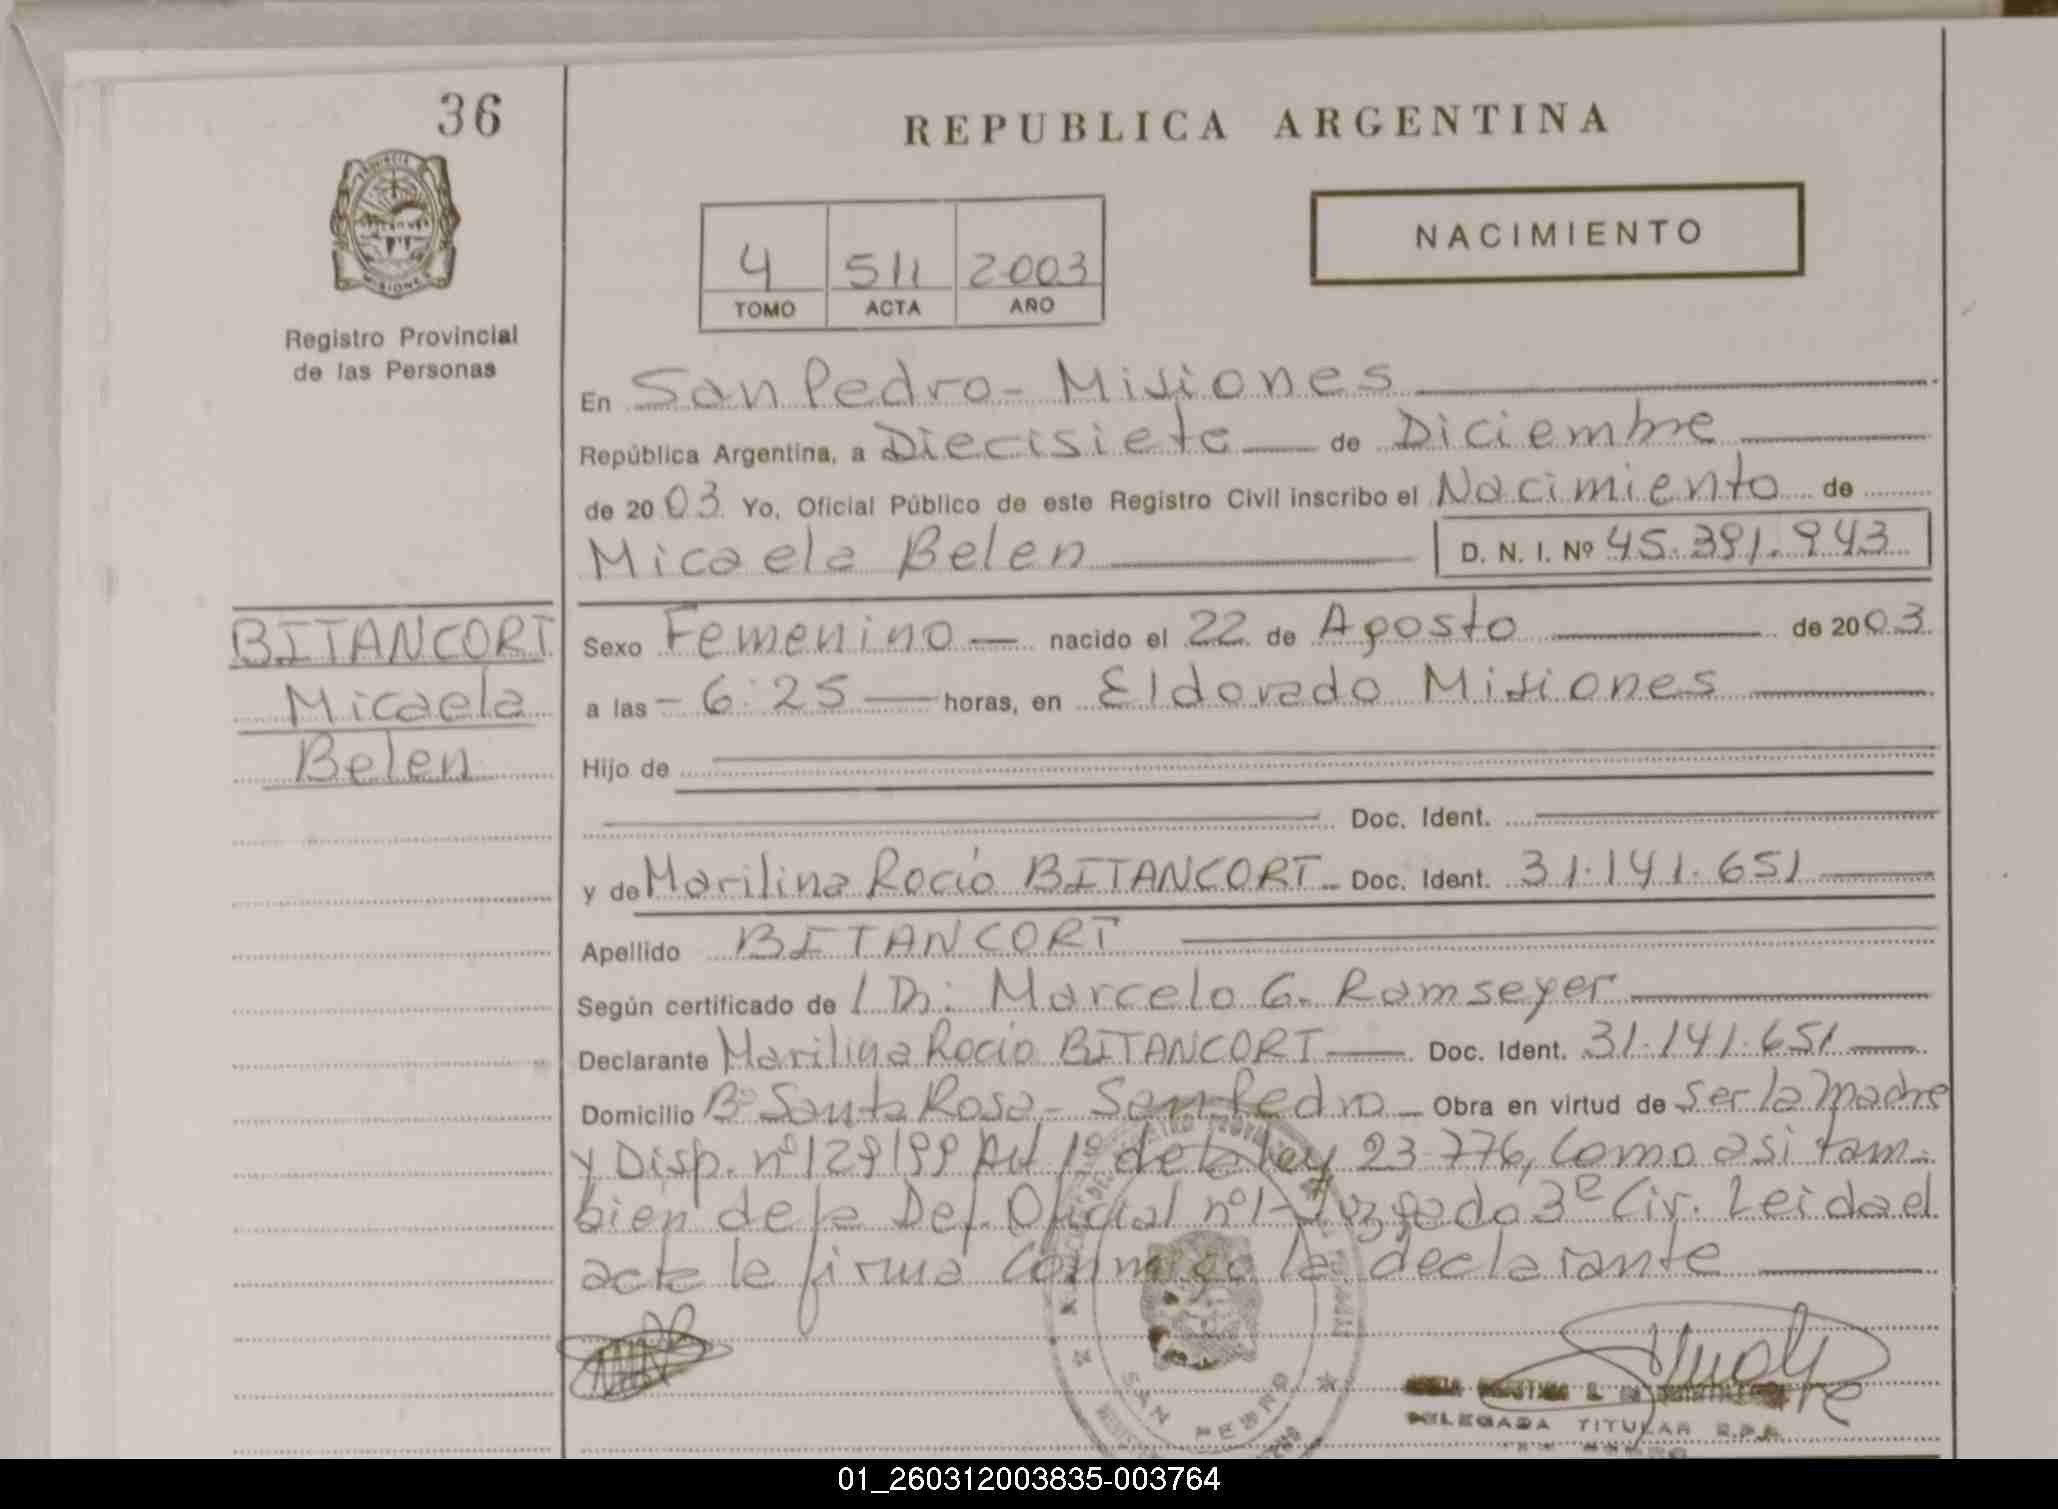 36
REPUBLICA ARGENTINA
NACIMIENTO
4 511 2003
TOMO ACTA AÑO
PROVINCIA
MISIONES
Registro Provincial
de las Personas
En San Pedro - Misiones
República Argentina, a Diecisiete de Diciembre
de 2003 Yo, Oficial Público de este Registro Civil inscribo el Nacimiento de
Micaela Belen D. N. I. Nº 45.391.943
BITANCORT
Micaela
Belen
Sexo Femenino nacido el 22 de Agosto de 2003
a las - 6:25 horas, en Eldorado Misiones
Hijo de
Doc. Ident.
y de Marilina Rocío BITANCORT Doc. Ident. 31.141.651
Apellido BITANCORT
Según certificado de / Dr: Marcelo G. Ramseyer
Declarante Marilina Rocío BITANCORT Doc. Ident. 31.141.651
Domicilio Bº Santa Rosa - San Pedro Obra en virtud de Ser la Madre
y Disp. nº 129/99 Art 1º de la Ley 23.776, Como asi tam-
bien de la Def. Oficial nº 1 - Juzgado 3º Civ. Leida el
acta la firma Conmigo la declarante
SAN PEDRO
DELEGADA TITULAR R.P.P.
01_260312003835-003764